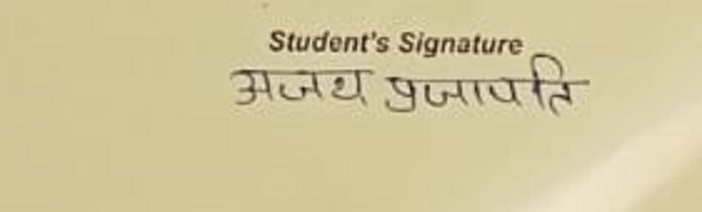 Student's Signature
अजय प्रजापति